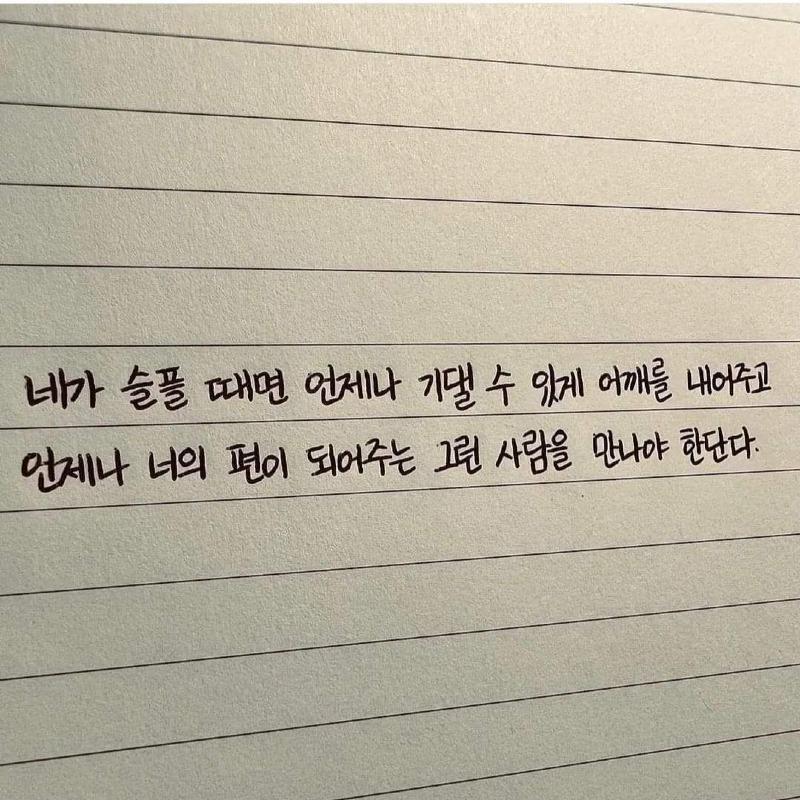 네가 슬플 때면 언제나 기댈 수 있게 어깨를 내어주고
언제나 너의 편이 되어주는 그런 사람을 만나야 한단다.